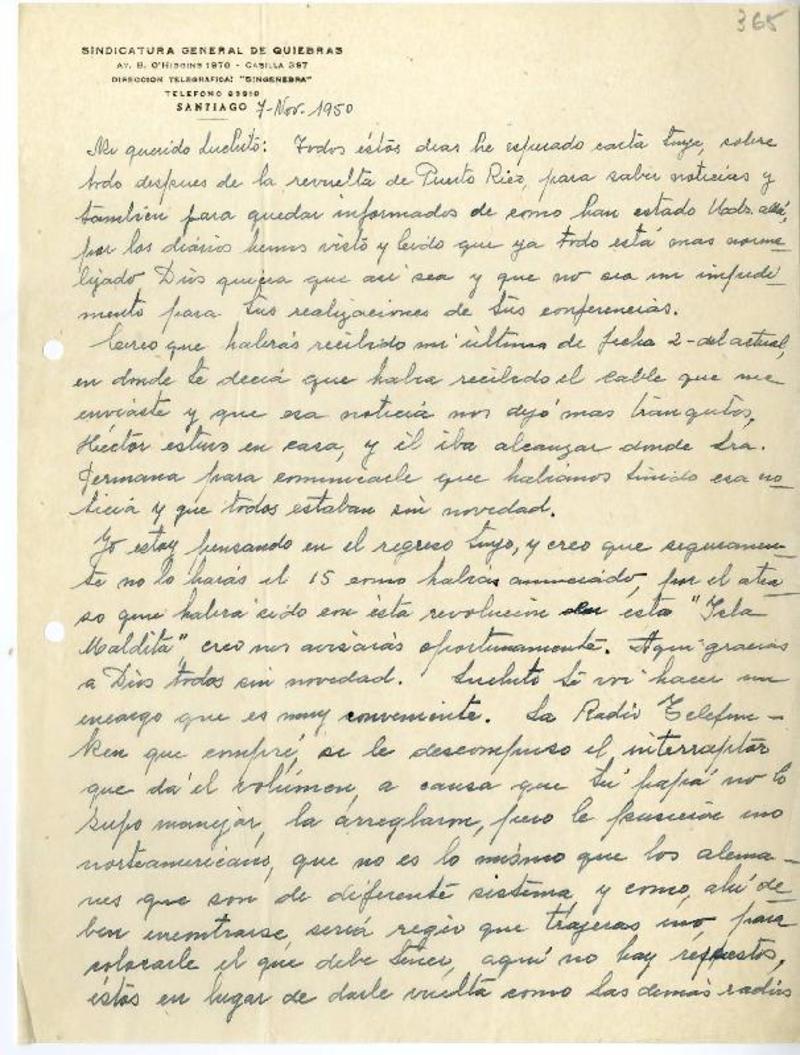 365
SINDICATURA GENERAL DE QUIEBRAS
AV. B. O'HIGGINS 1970 - CASILLA 397
DIRECCION TELEGRAFICA: "SINGENEBRA"
TELEFONO
SANTIAGO 7-Nov. 1950
Mi querido Luchito: Todos éstos dias he esperado carta tuya, sobre
todo despues de la revuelta de Puerto Rico, para saber noticias y
también para quedar informados de como han estado Uads. allá,
por los diários hemos visto y leido que ya todo está mas norma_
lizado, Dios quiera que asi sea y que no sea un impedi_
mento para tus realizaciones de tus conferencias.
Creo que habrás recibido mi última de fecha 2-del actual,
en donde te decia que habia recibido el cable que me
enviáste y que esa noticiá nos dejó mas tranquilos.
Héctor estuvo en casa, y él iba alcanzar donde Sra.
Germana para comunicarle que habiamos tenido esa no_
ticiá y que todos estaban sin novedad.
Yo estoy pensando en el regreso tuyo, y creo que seguramen_
te no lo harás el 15 como habias anunciádo, por el atra_
so que habrá sido con ésta revolución en esta "Isla
Maldita", creo nos avisarás oportunamente. Aqui gracias
a Dios todos sin novedad. Luchito te voi hacer un
encargo que es muy conveniente. La Radio Telefun_
ken que compré, se le descompuso el interruptor
que dá el volúmen, a causa que tu papá no lo
supo manejar, la arreglaron, pero le pusieron uno
norteamericano, que no es lo mismo que los alema_
nes que son de diferente sistema, y como, ahi de_
ben encontrarse, seriá regio que trajeras uno, para
colocarle el que debe tener, aqui no hay repuestos,
éstos en lugar de darle vuelta como las demás radios